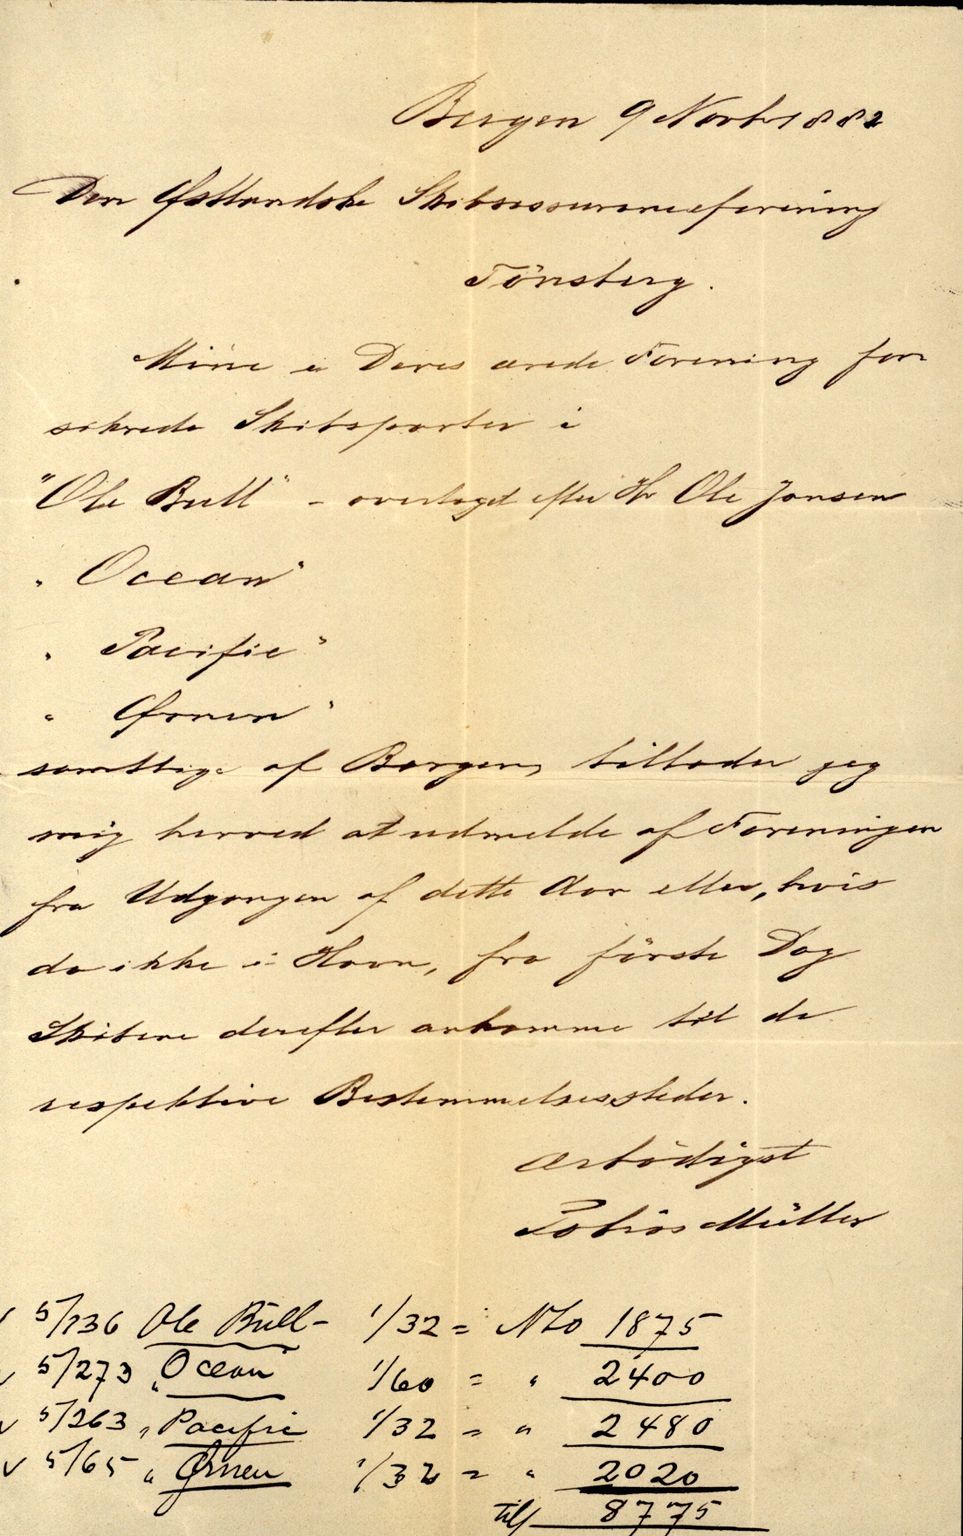 Bergen 9 Novbr 1882
Den Østlandske Skibsassuranceforening
Tönsberg.
Mine i Deres ærede Forening for
sikrede Skibsparter i
"Ole Bull" - overtaget efter Hr Ole Jansen
" Ocean"
" Pacific"
" Ørnen"
samtlige af Bergen, tillader jeg
mig herved at udmelde af Foreningen
fra Udgangen af dette Aar eller, hvis
da ikke i Havn, fra förste Dag
Skibene derefter ankomme til de
respektive Bestemmelsessteder.
Ærbödigst
Tobias Müller
✓ 5/136 Ole Bull - 1/32 = 1875
✓ 5/273 "Ocean" 1/60 = " 2400
✓ 5/263 " Pacific 1/32 = " 2480
✓ 5/65 " Ørnen 1/32 = " 2020
till 8775